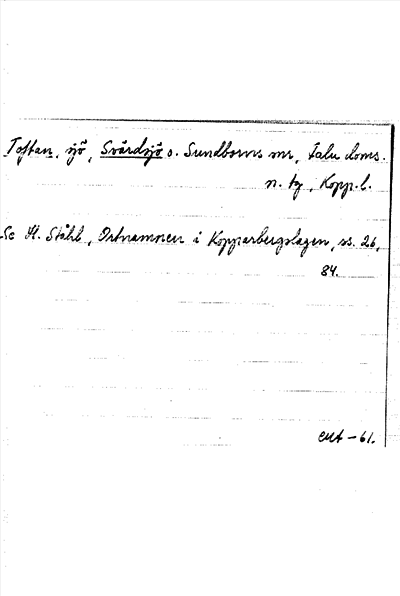 Toftan, sjö, Svärdsjö o. Sundborns snr, Falu doms.
n. tg, Kopp. l.
Se H. Ståhl, Ortnamnen i Kopparbergslagen, ss. 26,
84.
-61.